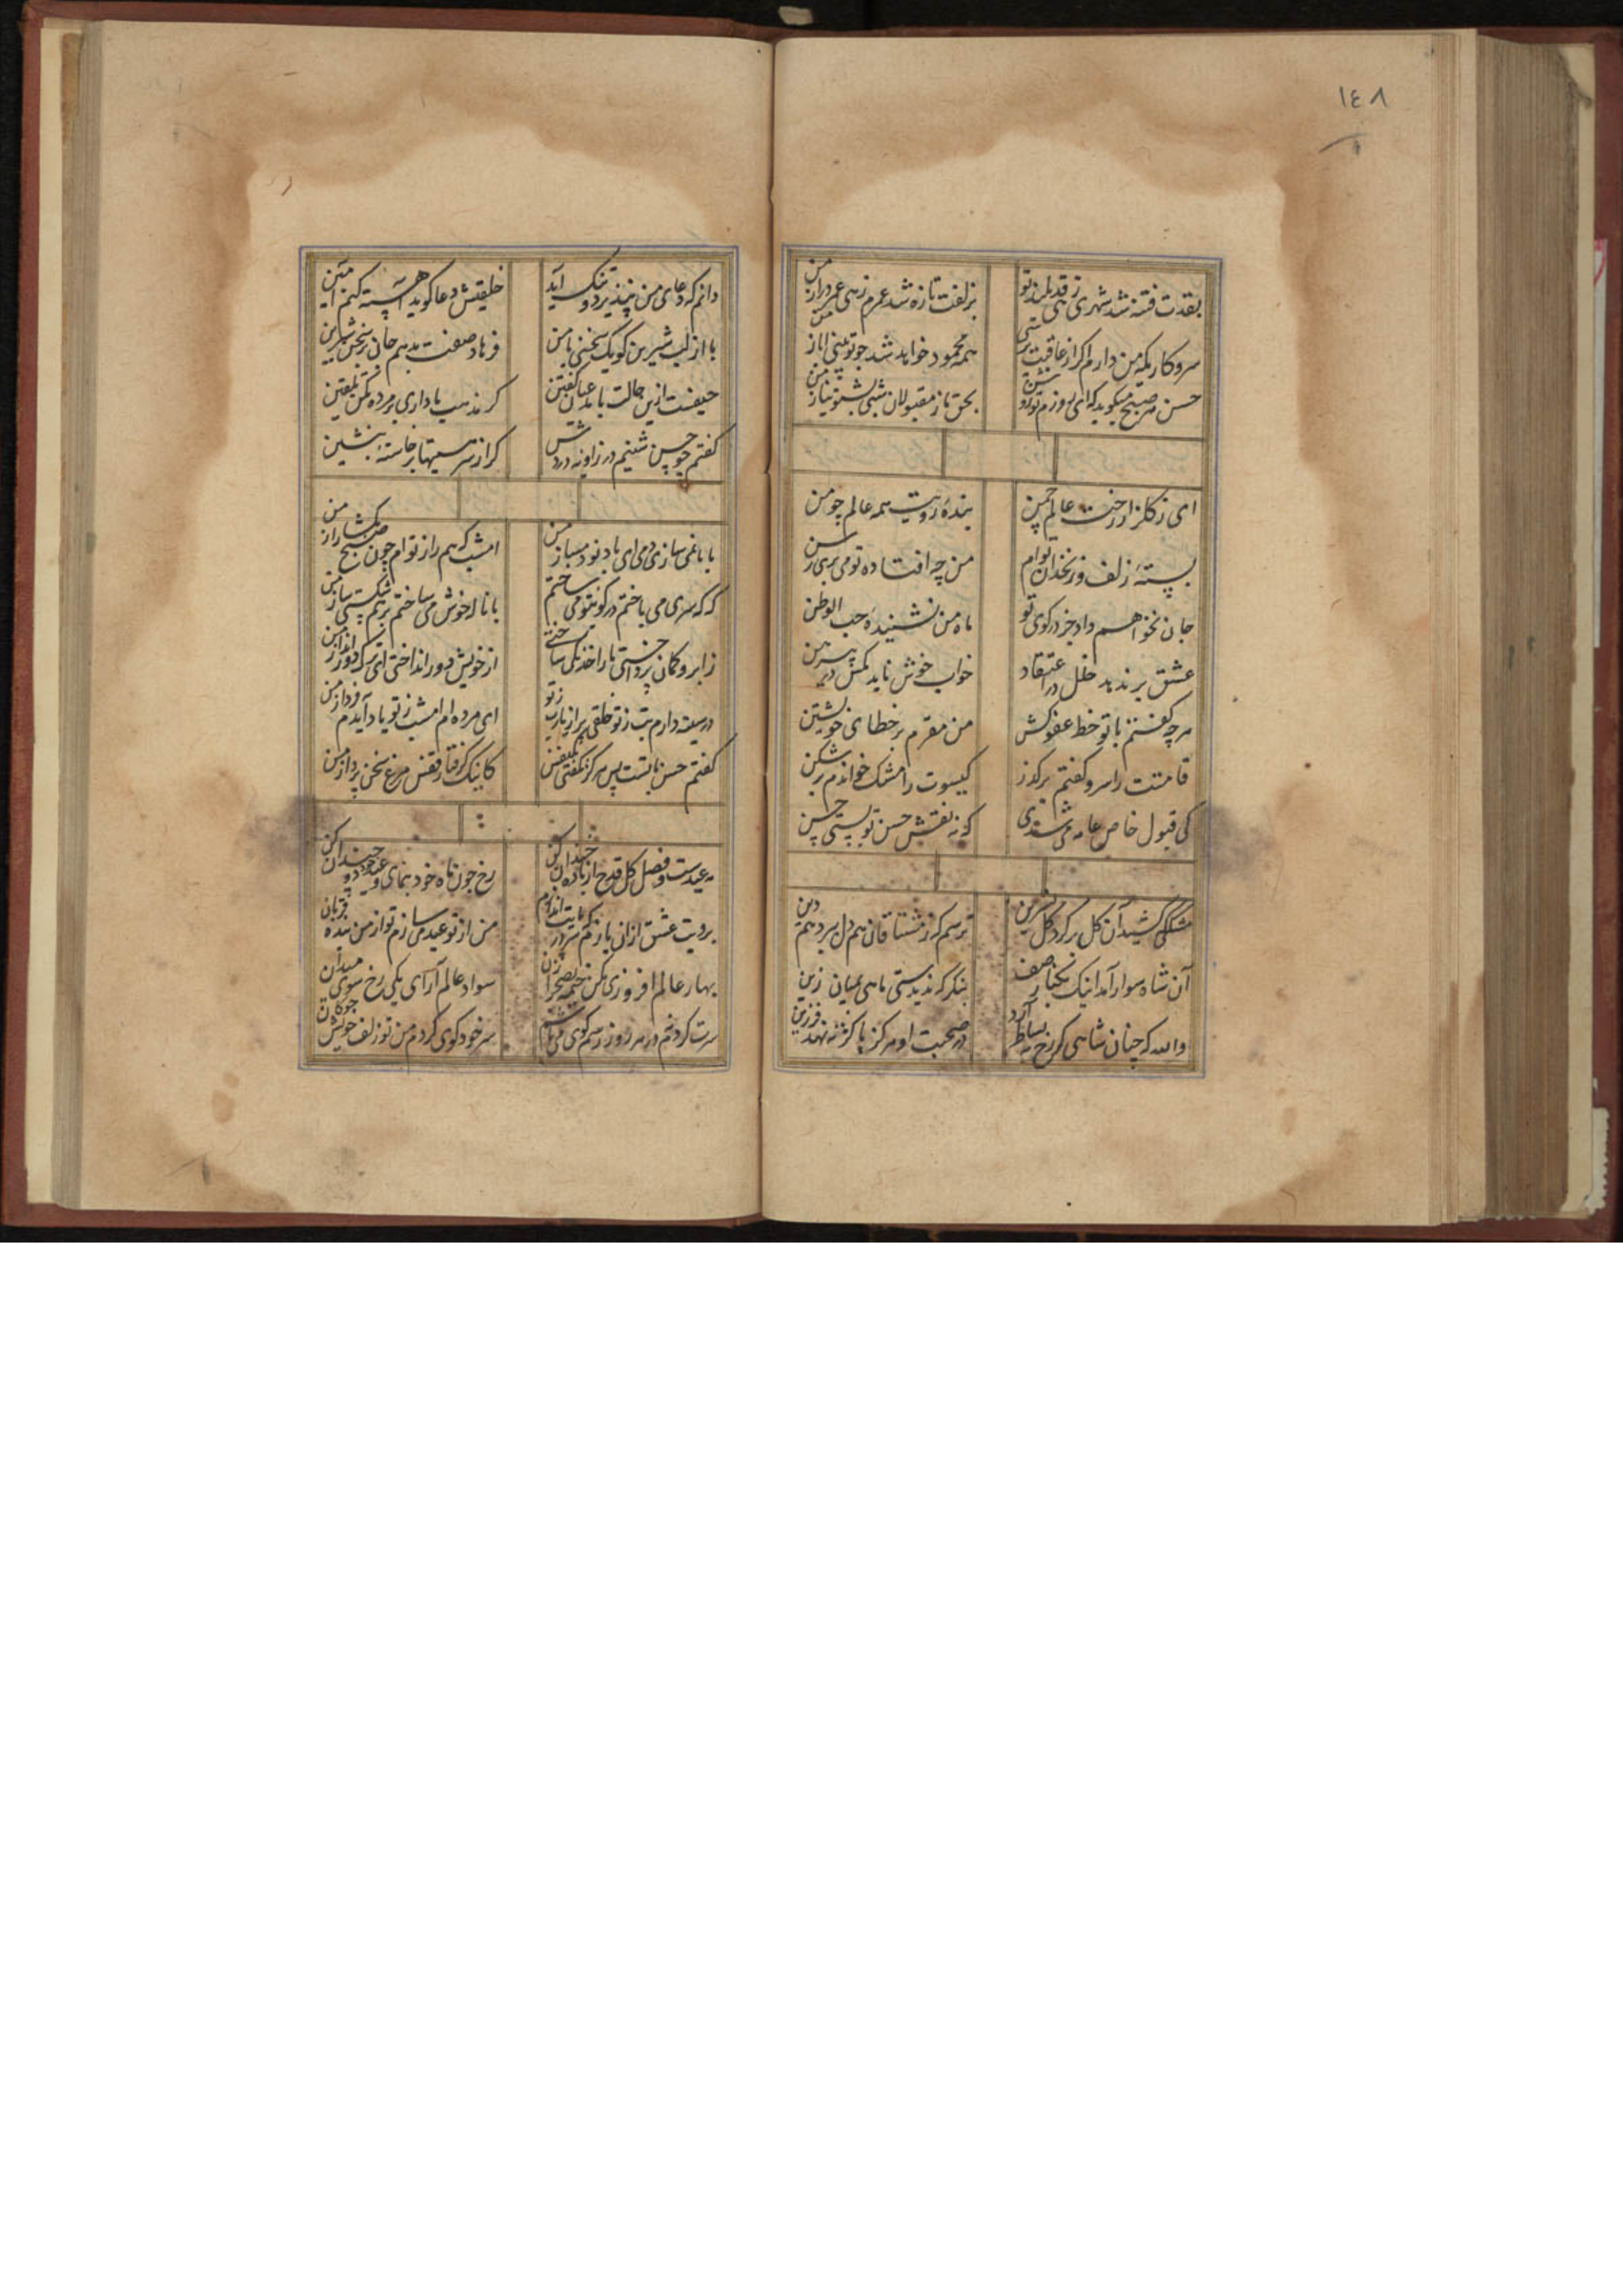 ١٤٨
بقدت فتنه شد شهری زهی قد بلند تو
بزلفت تازه شد عمرم زهی عمر دراز من
سر و کاریکه من دارم اکر از عاقبت پرسی
همه محمود خواهد شد چو تو بینی ایاز من
حسن هر صبح میکوید که ای روزم تو
بحق ناز مقبولان شبی بشنو نیاز من
ای ز کلزار رخت عالم چمن
بندهٔ رویت همه عالم چو من
بستهٔ زلف و زنخدان توام
من چه افتاده تو می بری رسن
جان نخواهم داد جز در کوی تو
ماه من نشنیدهٔ حب الوطن
عشق بر ندهد خلل در اعتقاد
خواب خوش ناید بکس در پیرهن
هرچه کفتم با تو خط عفو کش
من مقرم بر خطای خویشتن
قامتت را سرو کفتم برکذر
کیسوت را مشک خواندم برشکن
کی قبول خاص و عامه می شدی
کر نه نقش حسن تو بستی حسن
مشکی کشید آن کل بر کرد کل نسرین
ترسم که ز مشتاقان هم دل ببرد هم دین
آن شاه سوار آمد اینک
بنکر که ندیدستی ماهی بمیان زین
والله که چنان شاهی کر رخ به بساط آرد
در صحبت او هرکز پا کژ ننهد فرزین
دانم که دعای من نپذیرد و تنک آید
خلیقش دعا کوید آهسته کنم آمین
یا از لب شیرین کو یک سخنی با من
فرهاد صفت بدهم جان بر سخن شیرین
حیفست ازین حالت با مدعیان کفتن
کر مذهب ما داری بر مرده مکن تلقین
کفتم چو حسن شینم در زاویهٔ دردش
کر از سر مستیها برخاستهٔ بنشین
با ما نمی سازی دمی ای باد نود مساز من
امشب که هم راز توام چون صبح مکشا راز من
که که سری می باختم در کویتو می ساختم
با ناله خوش می ساختم بر هم شکستی ساز من
ز ابرو کمان پرداختی ما را خدنکی ساختی
از خویش دور انداختی ای ترک دور انداز من
در سینه دارم تب ز تو خلقی پر از یارب ز تو
ای مرده ام امشب ز تو یاد آیدم فردا ز من
کفتم حسن تا بست پس هرکز نکفتی یکنفس
کاینک کرفتار قفس مرغ سخن پرداز من
مه عیدست و فصل کل قدح از باده خندان کن
رخ چون ماه خود بنمای و عید خود دو چندان کن
برویت عشق ازان بازم که سر در پایت اندازم
من از تو عید می سازم تو از من بنده قربان
بهار عالم افروزی مکن خیمه بصحرا زن
سواد عالم آرای یکی رخ سوی میدان
سرت کردم تو در هر روز رسم کوی می باش
سر خود کوی کردم من تو زلف خویش چوکان